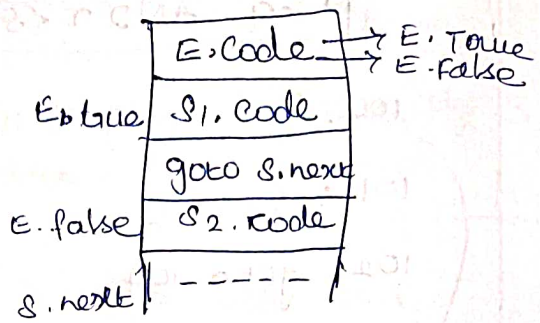 E.Code → E. True
→ E.false
E.true S1. Code
goto S.next
E.false S2. Code
S.next - - - - -